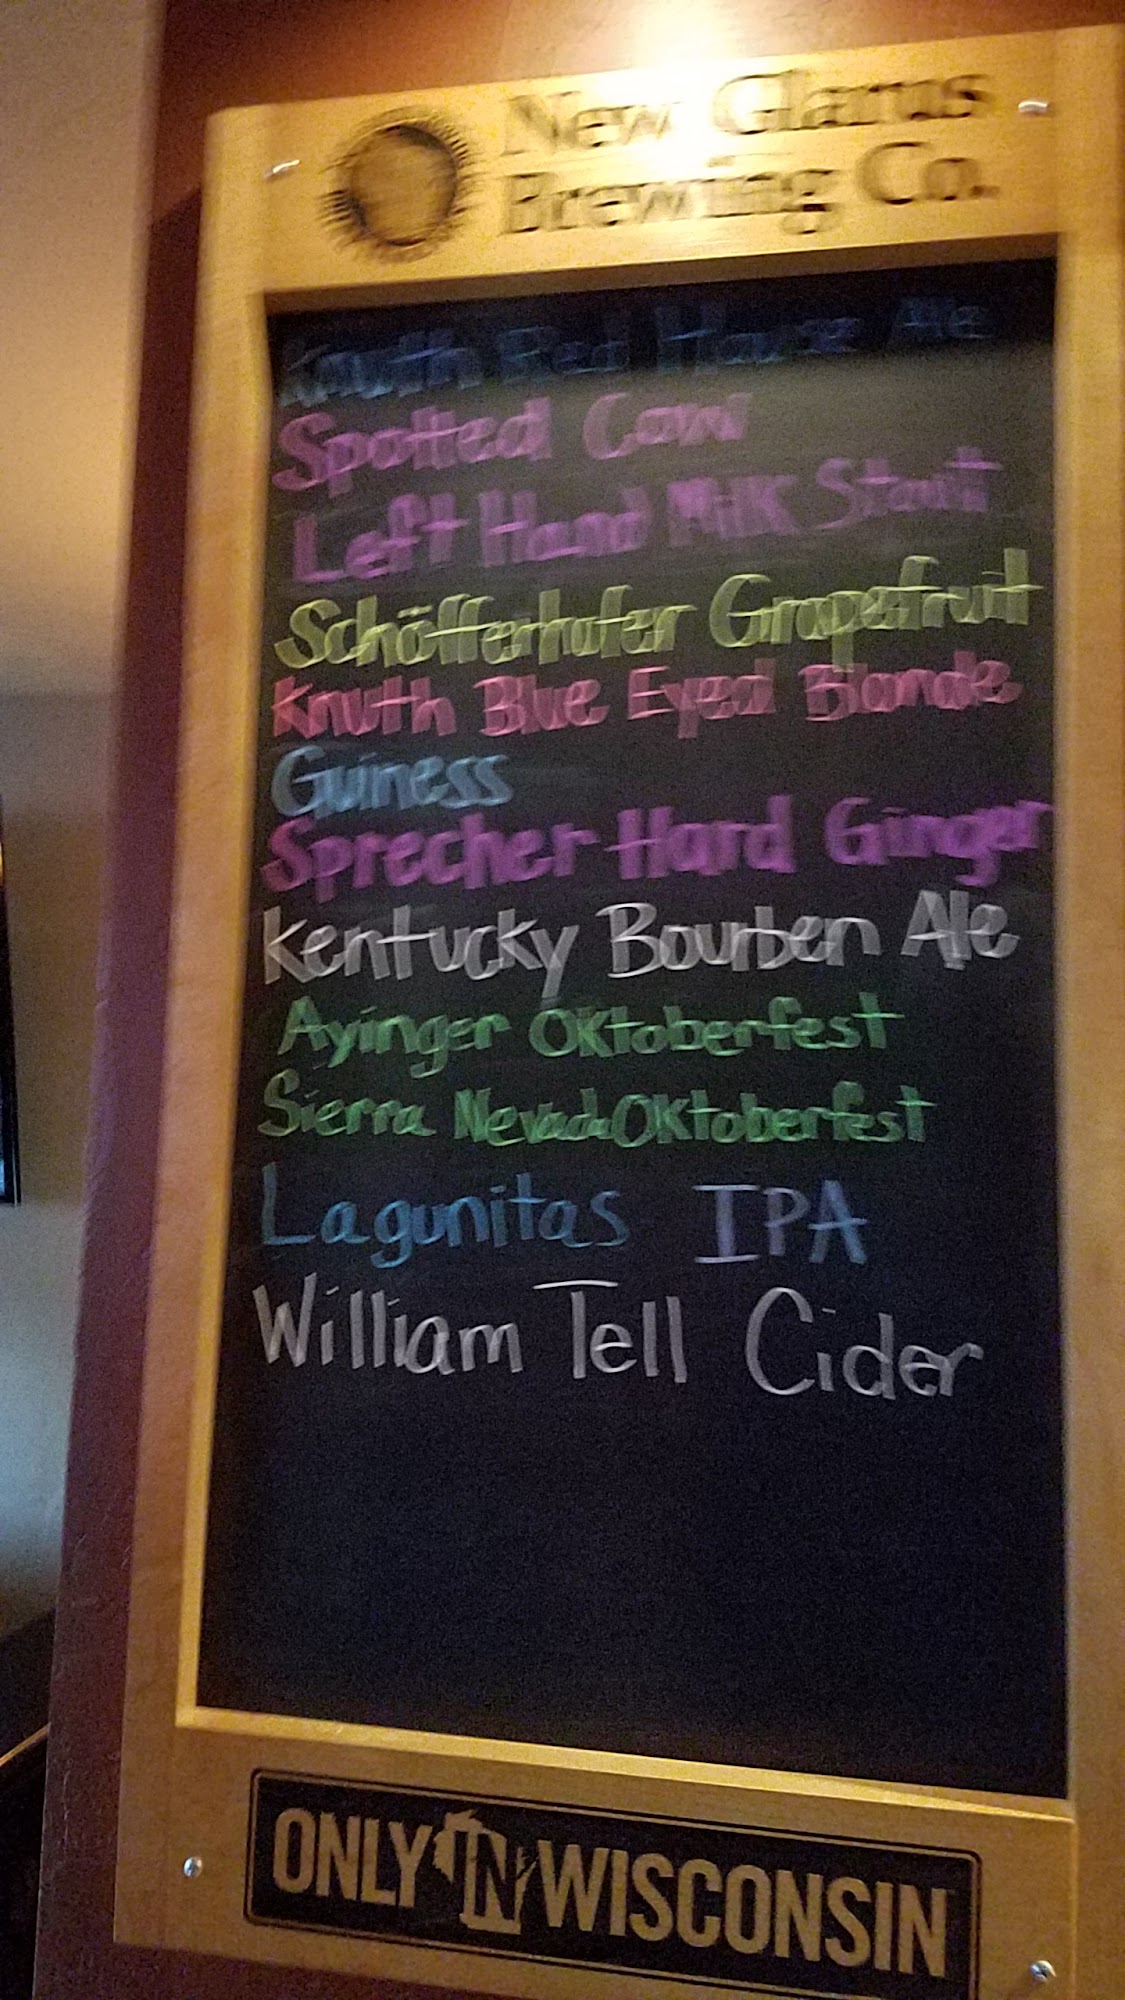 New Glarus
Brewing Co.
Knuth Red House Ale
Spotted Cow
Left Hand Milk Stout
Schöfferhofer Grapefruit
Knuth Blue Eyed Blonde
Guiness
Sprecher Hard Ginger
Kentucky Bourben Ale
Ayinger Oktoberfest
Sierra Nevada Oktoberfest
Lagunitas IPA
William Tell Cider
ONLY IN WISCONSIN